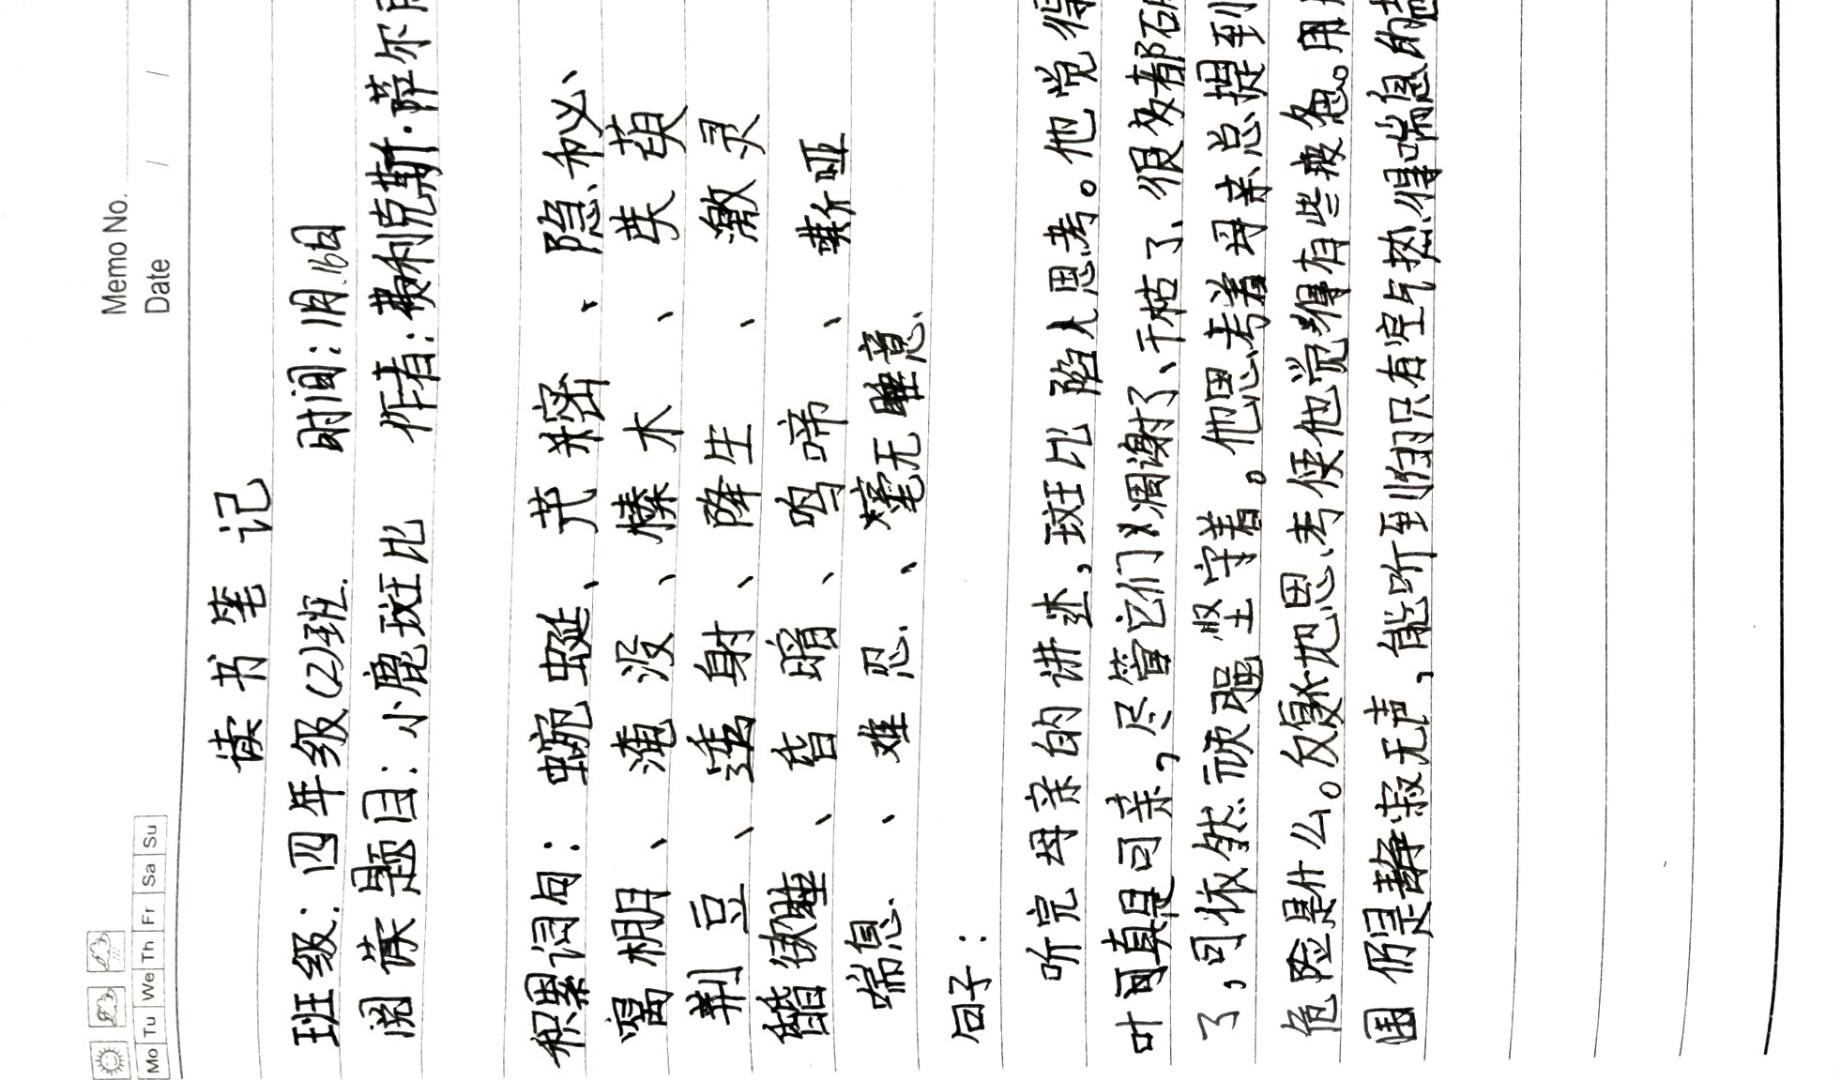 Memo No.
Mo Tu We Th Fr Sa Su
Date / /
读书笔记
班级：四年级(2)班. 时间：1月.16日
阅读题目：小鹿班比 作者：费利克斯·萨尔
积累词句：蜿蜒、茂密、隐秘、
窝棚、淹没、榛木、荚萸
荆豆、透射、降生、激灵
皆欲睡、昏暗、鸣啼、嘶哑
喘息、难忍、毫无睡意.
句子：
听完母亲的讲述，班比陷入思考。他觉得
叶可真是可亲，尽管它们从凋谢了、干枯了、很多都
了，可依然顽强坚守着。他思考着母亲总提到
危险是什么。反复地思考使他觉得有些疲惫。用
围仍是静寂无声，能听到的只有空气热得喘息的